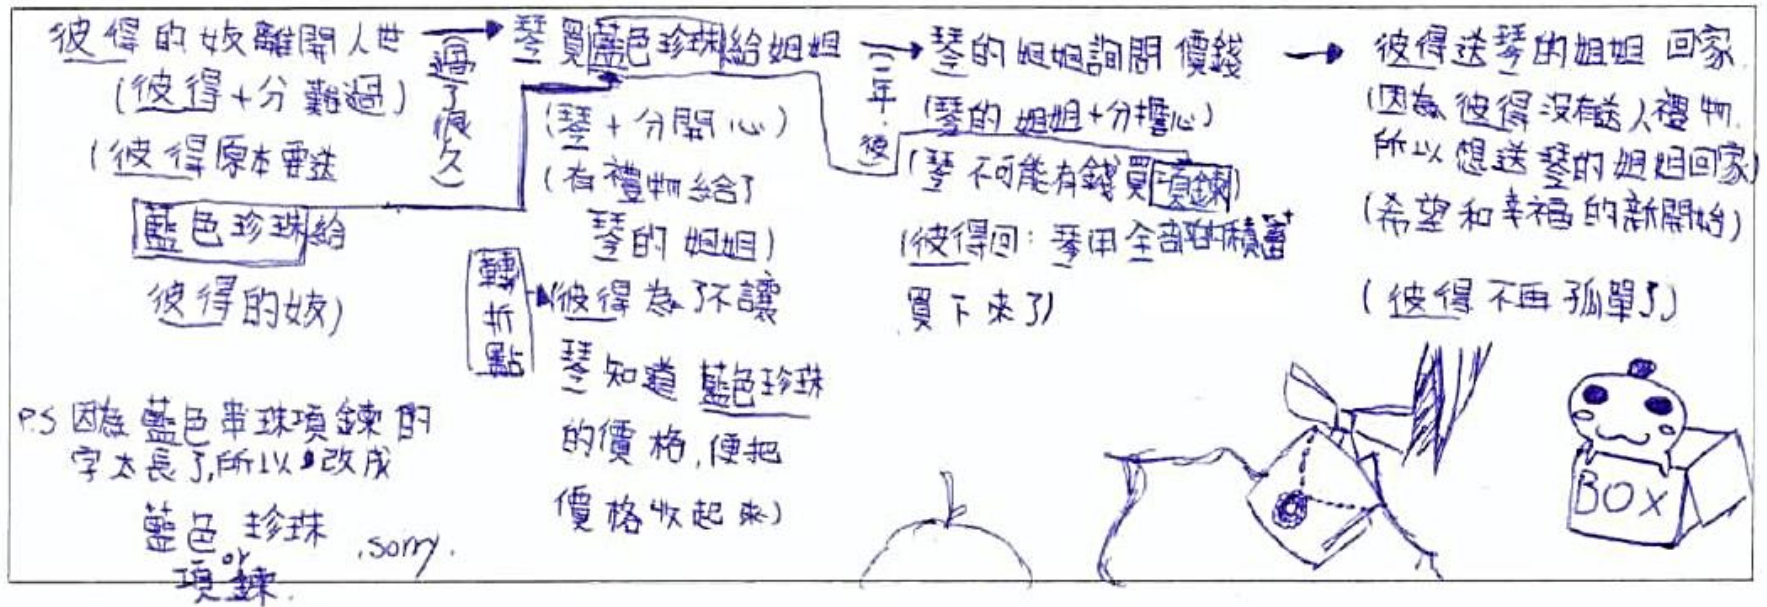 彼得的女友離開人世
(彼得十分難過)
(彼得原本要送
藍色珍珠給
彼得的女友)
(過了很久)
琴買藍色珍珠給姐姐
(琴十分開心)
(有禮物給了
琴的姐姐)
轉折點
(彼得為了不讓
琴知道藍色珍珠
的價格,便把
價格收起來)
琴的姐姐詢問價錢
(琴的姐姐十分擔心)
(琴不可能有錢買項鍊)
(彼得回:琴用全部的積蓄
買下來了)
彼得送琴的姐姐回家
(因為彼得沒有送人禮物.
所以想送琴的姐姐回家)
(希望和幸福的新開始)
(彼得不再孤單了)
P.S 因為藍色串珠項鍊的
字太長了,所以改成
藍色珍珠
or
項鍊.
.sorry.
BOX